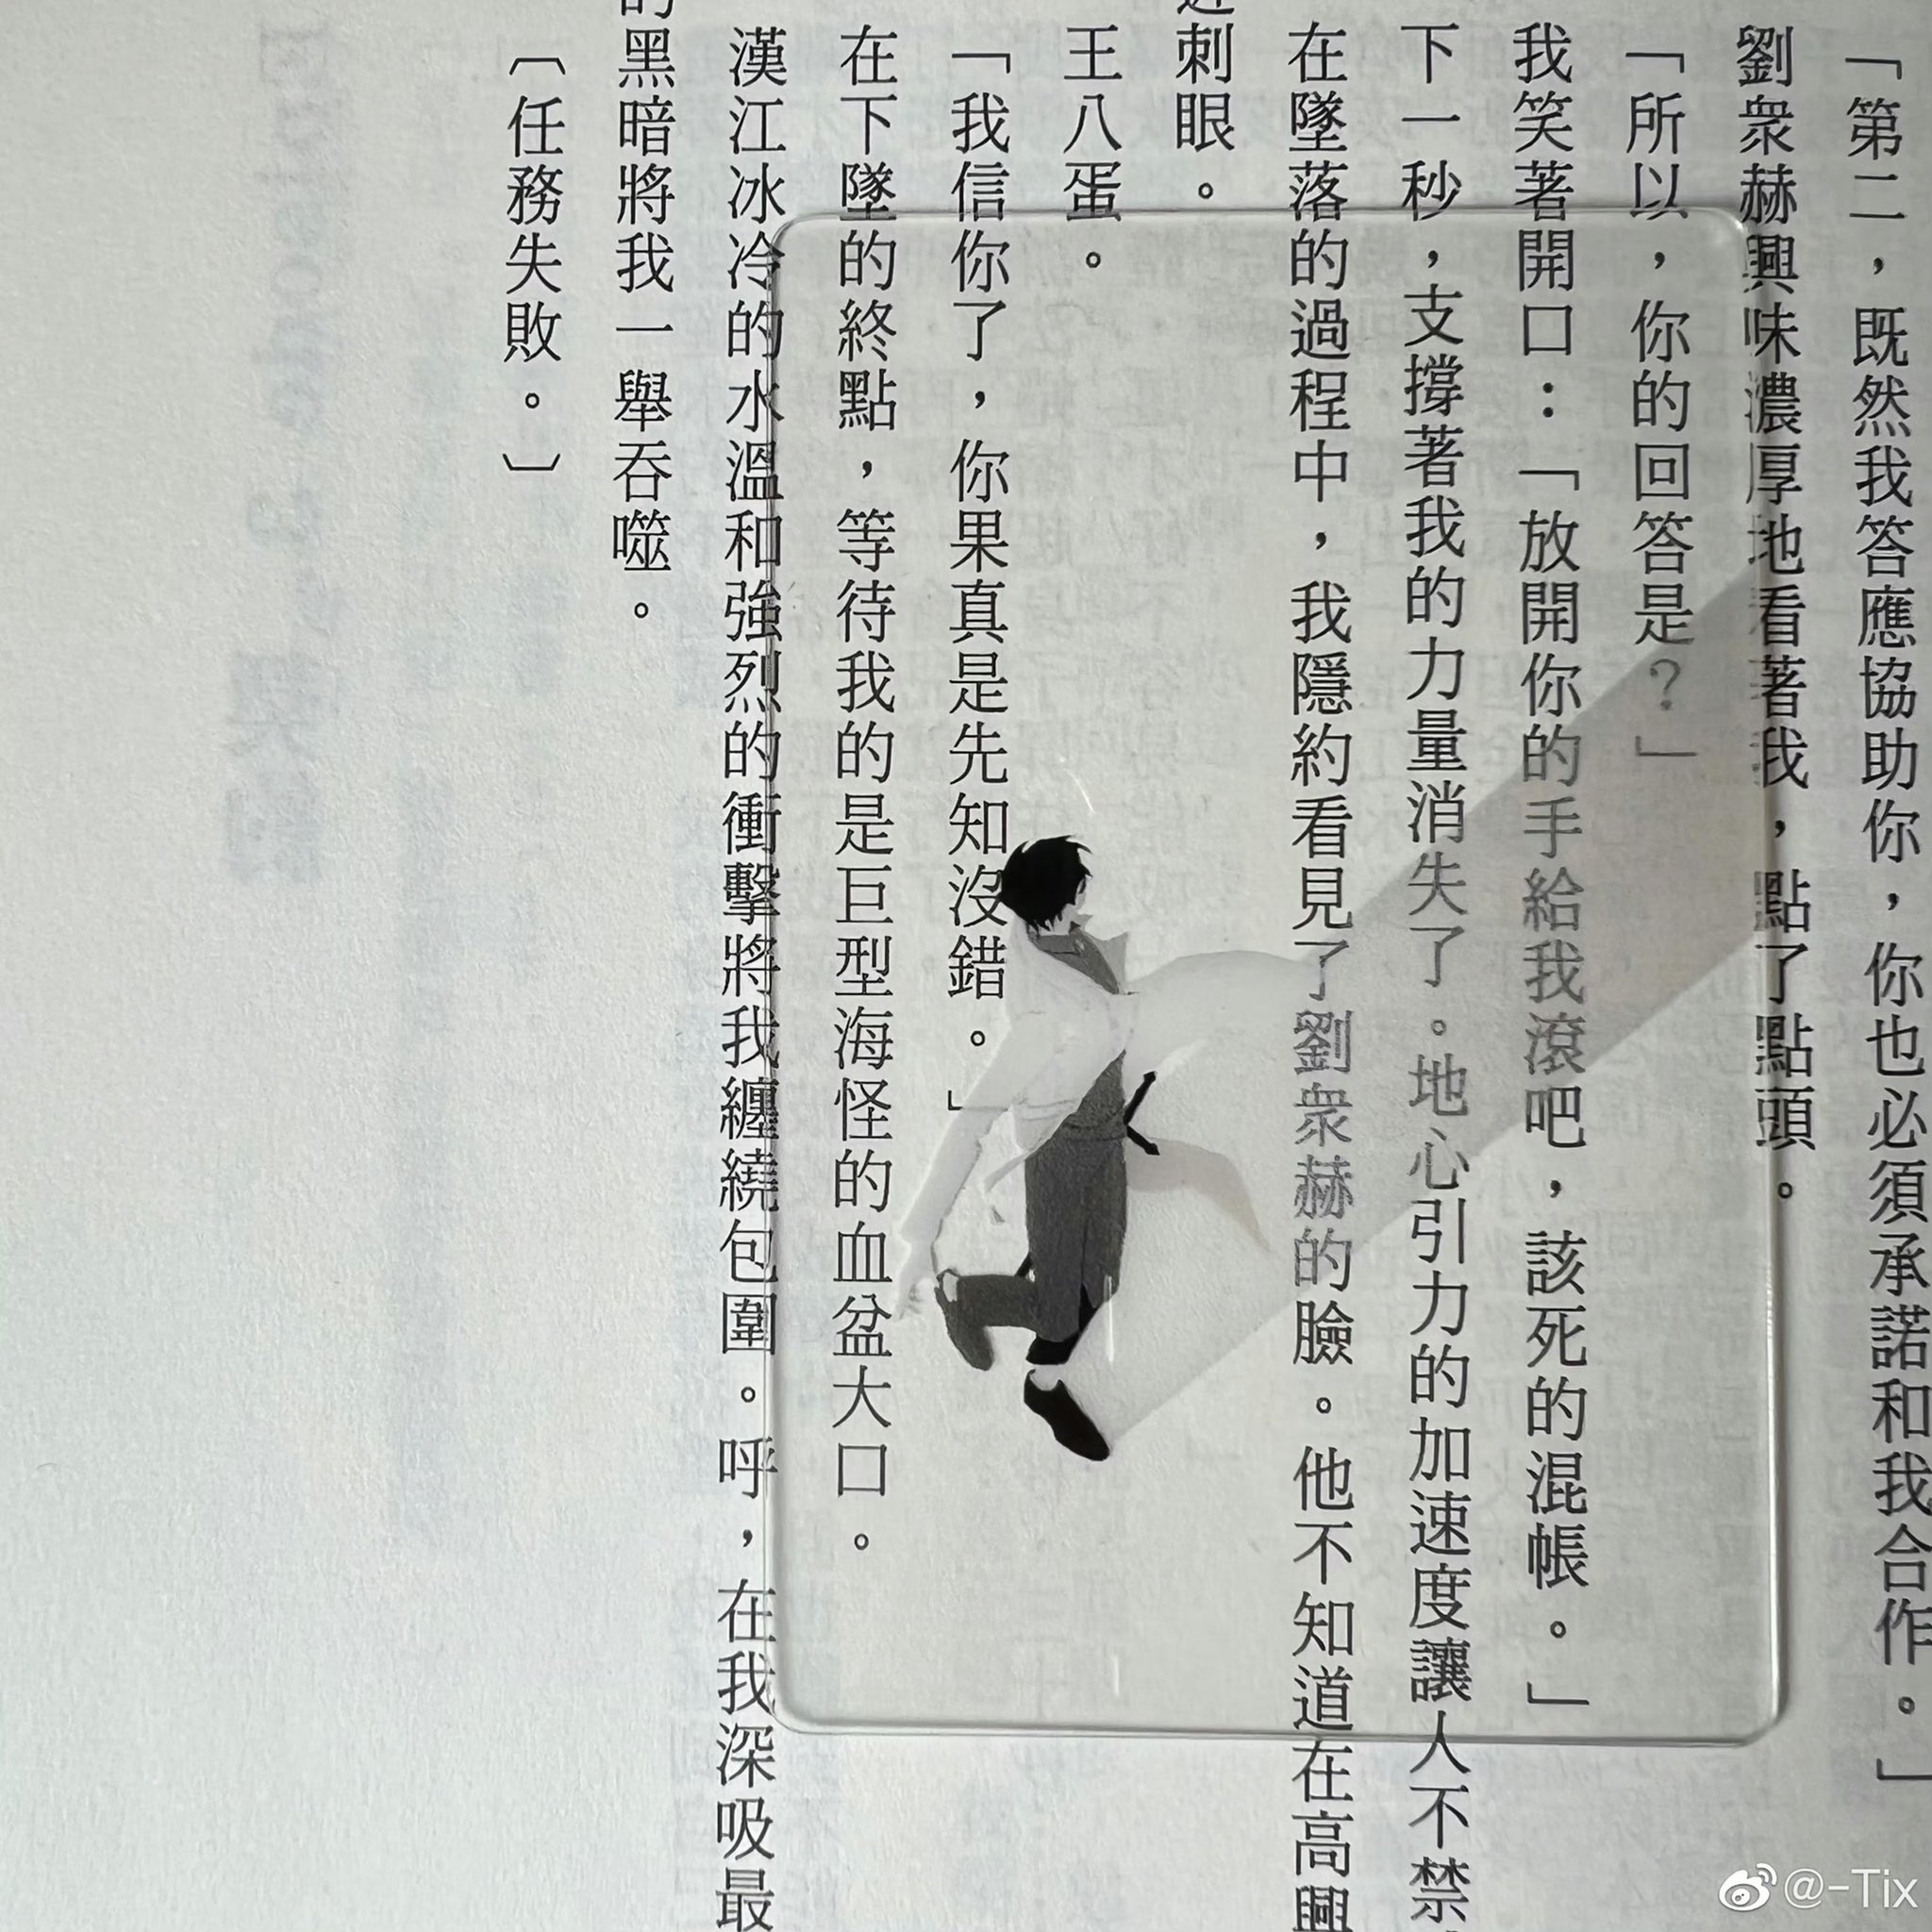 「第二，既然我答應協助你，你也必須承諾和我合作。」
劉衆赫興味濃厚地看著我，點了點頭。
「所以，你的回答是？」
我笑著開口：「放開你的手給我滾吧，該死的混帳。」
下一秒，支撐著我的力量消失了。地心引力的加速度讓人不禁
在墜落的過程中，我隱約看見了劉衆赫的臉。他不知道在高興
刺眼。
王八蛋。
「我信你了，你果真是先知沒錯。」
在下墜的終點，等待我的是巨型海怪的血盆大口。
漢江冰冷的水溫和強烈的衝擊將我纏繞包圍。呼，在我深吸最
的黑暗將我一舉吞噬。
〔任務失敗。〕
@-Tix